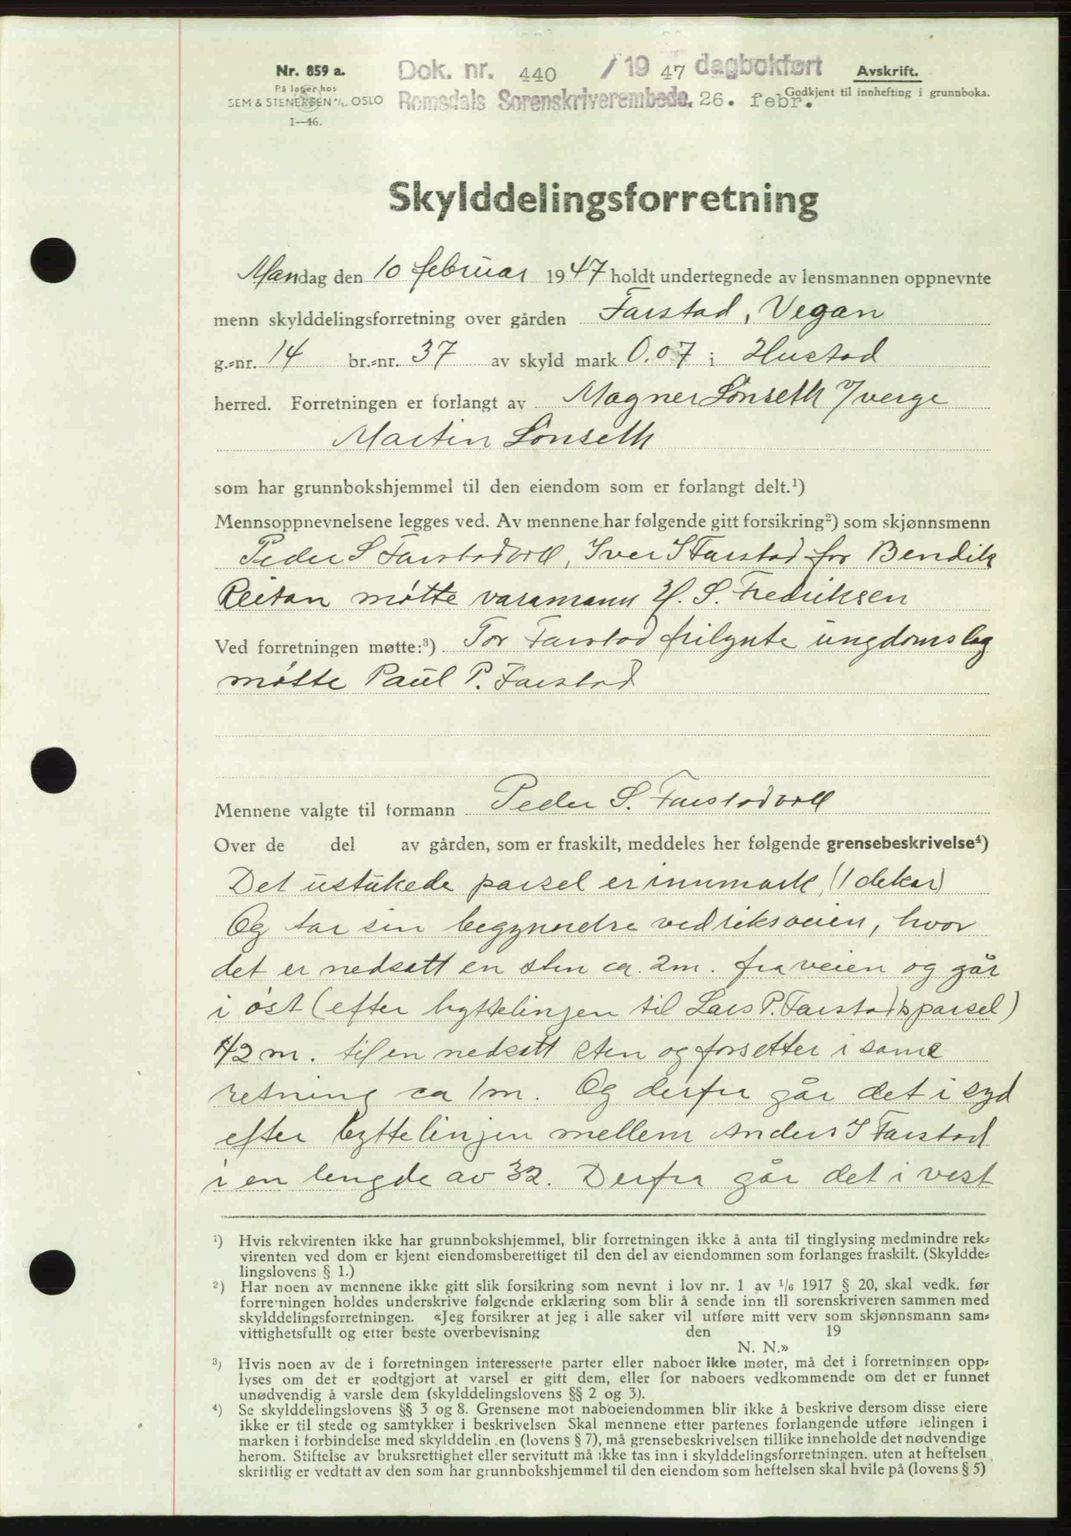 Nr. 859 a.
På lager hos
SEM & STENERSEN A/S, OSLO
1—46.
Dok. nr. 440 / 19 47 dagbokført
Romsdals Sorenskriverembede. 26. febr.
Avskrift.
Godkjent til innhefting i grunnboka.
Skylddelingsforretning
Mandag den 10 februar 1947 holdt undertegnede av lensmannen oppnevnte
menn skylddelingsforretning over gården Farstad, Vegan
g.-nr. 14 br.-nr. 37 av skyld mark 0.07 i Hustad
herred. Forretningen er forlangt av Magner Lønseth v/verge
Martin Lønseth
som har grunnbokshjemmel til den eiendom som er forlangt delt.¹)
Mennsoppnevnelsene legges ved. Av mennene har følgende gitt forsikring²) som skjønnsmenn
Peder S Farstadvoll, Iver I Farstad for Bendik
Reitan møtte varamann H. S. Fredriksen
Ved forretningen møtte:³) For Farstad frilynte ungdomslag
møtte Paul P. Farstad
Mennene valgte til formann Peder S. Farstadvoll
Over de del av gården, som er fraskilt, meddeles her følgende grensebeskrivelse⁴)
Det ustukede parsel er innmark, (1 dekar)
Og tar sin begynnelse ved riksveien, hvor
det er nedsatt en sten ca. 2m. fra veien og går
i øst (efter byttelinjen til Lars P. Farstad's parsel)
42 m. til en nedsatt sten og forsetter i same
retning ca 1m. Og derfra går det i syd
efter byttelinjen mellem Anders I Farstad
i en lengde av 32. Derfra går det i vest
¹) Hvis rekvirenten ikke har grunnbokshjemmel, blir forretningen ikke å anta til tinglysing medmindre rek-
virenten ved dom er kjent eiendomsberettiget til den del av eiendommen som forlanges fraskilt. (Skyldde-
lingslovens § 1.)
²) Har noen av mennene ikke gitt slik forsikring som nevnt i lov nr. 1 av 1/6 1917 § 20, skal vedk. før
forretningen holdes underskrive følgende erklæring som blir å sende inn til sorenskriveren sammen med
skylddelingsforretningen. «Jeg forsikrer at jeg i alle saker vil utføre mitt verv som skjønnsmann sam-
vittighetsfullt og etter beste overbevisning den 19
N. N.»
³) Hvis noen av de i forretningen interesserte parter eller naboer ikke møter, må det i forretningen opp-
lyses om det er godtgjort at varsel er gitt dem, eller for naboers vedkommende om det er funnet
unødvendig å varsle dem (skylddelingslovens §§ 2 og 3).
⁴) Se skylddelingslovens §§ 3 og 8. Grensene mot naboeiendommen blir ikke å beskrive dersom disse eiere
ikke er til stede og samtykker i beskrivelsen Skal mennene etter partenes forlangende utføre delingen i
marken i forbindelse med skylddelingen (lovens § 7), må grensebeskrivelsen tillike inneholde det nødvendige
herom. Stiftelse av bruksrettighet eller servitutt må ikke tas inn i skylddelingsforretningen. uten at heftelsen
skriftlig er vedtatt av den som har grunnbokshjemmel til den eiendom som heftelsen skal hvile på (lovens § 5)